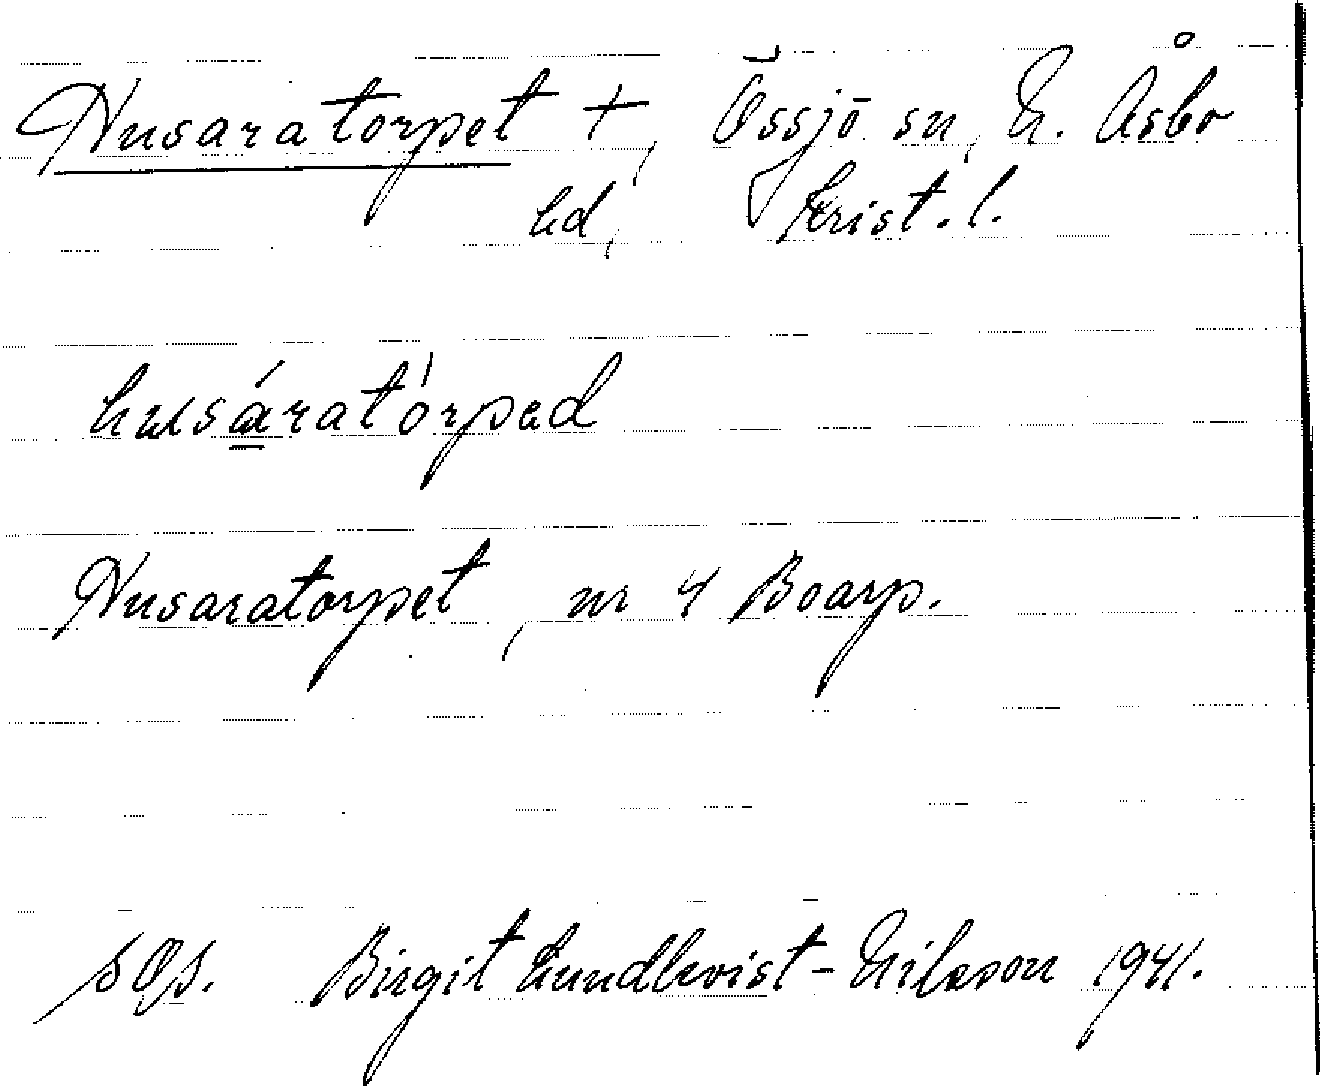 Husaratorpet +, Össjö sn, N. Åsbo
hd, Krist. l.
husáratórpad
Husaratorpet, nr 4 Boarp.
sgs. Birgit Lundkvist-Nilsson 1941.